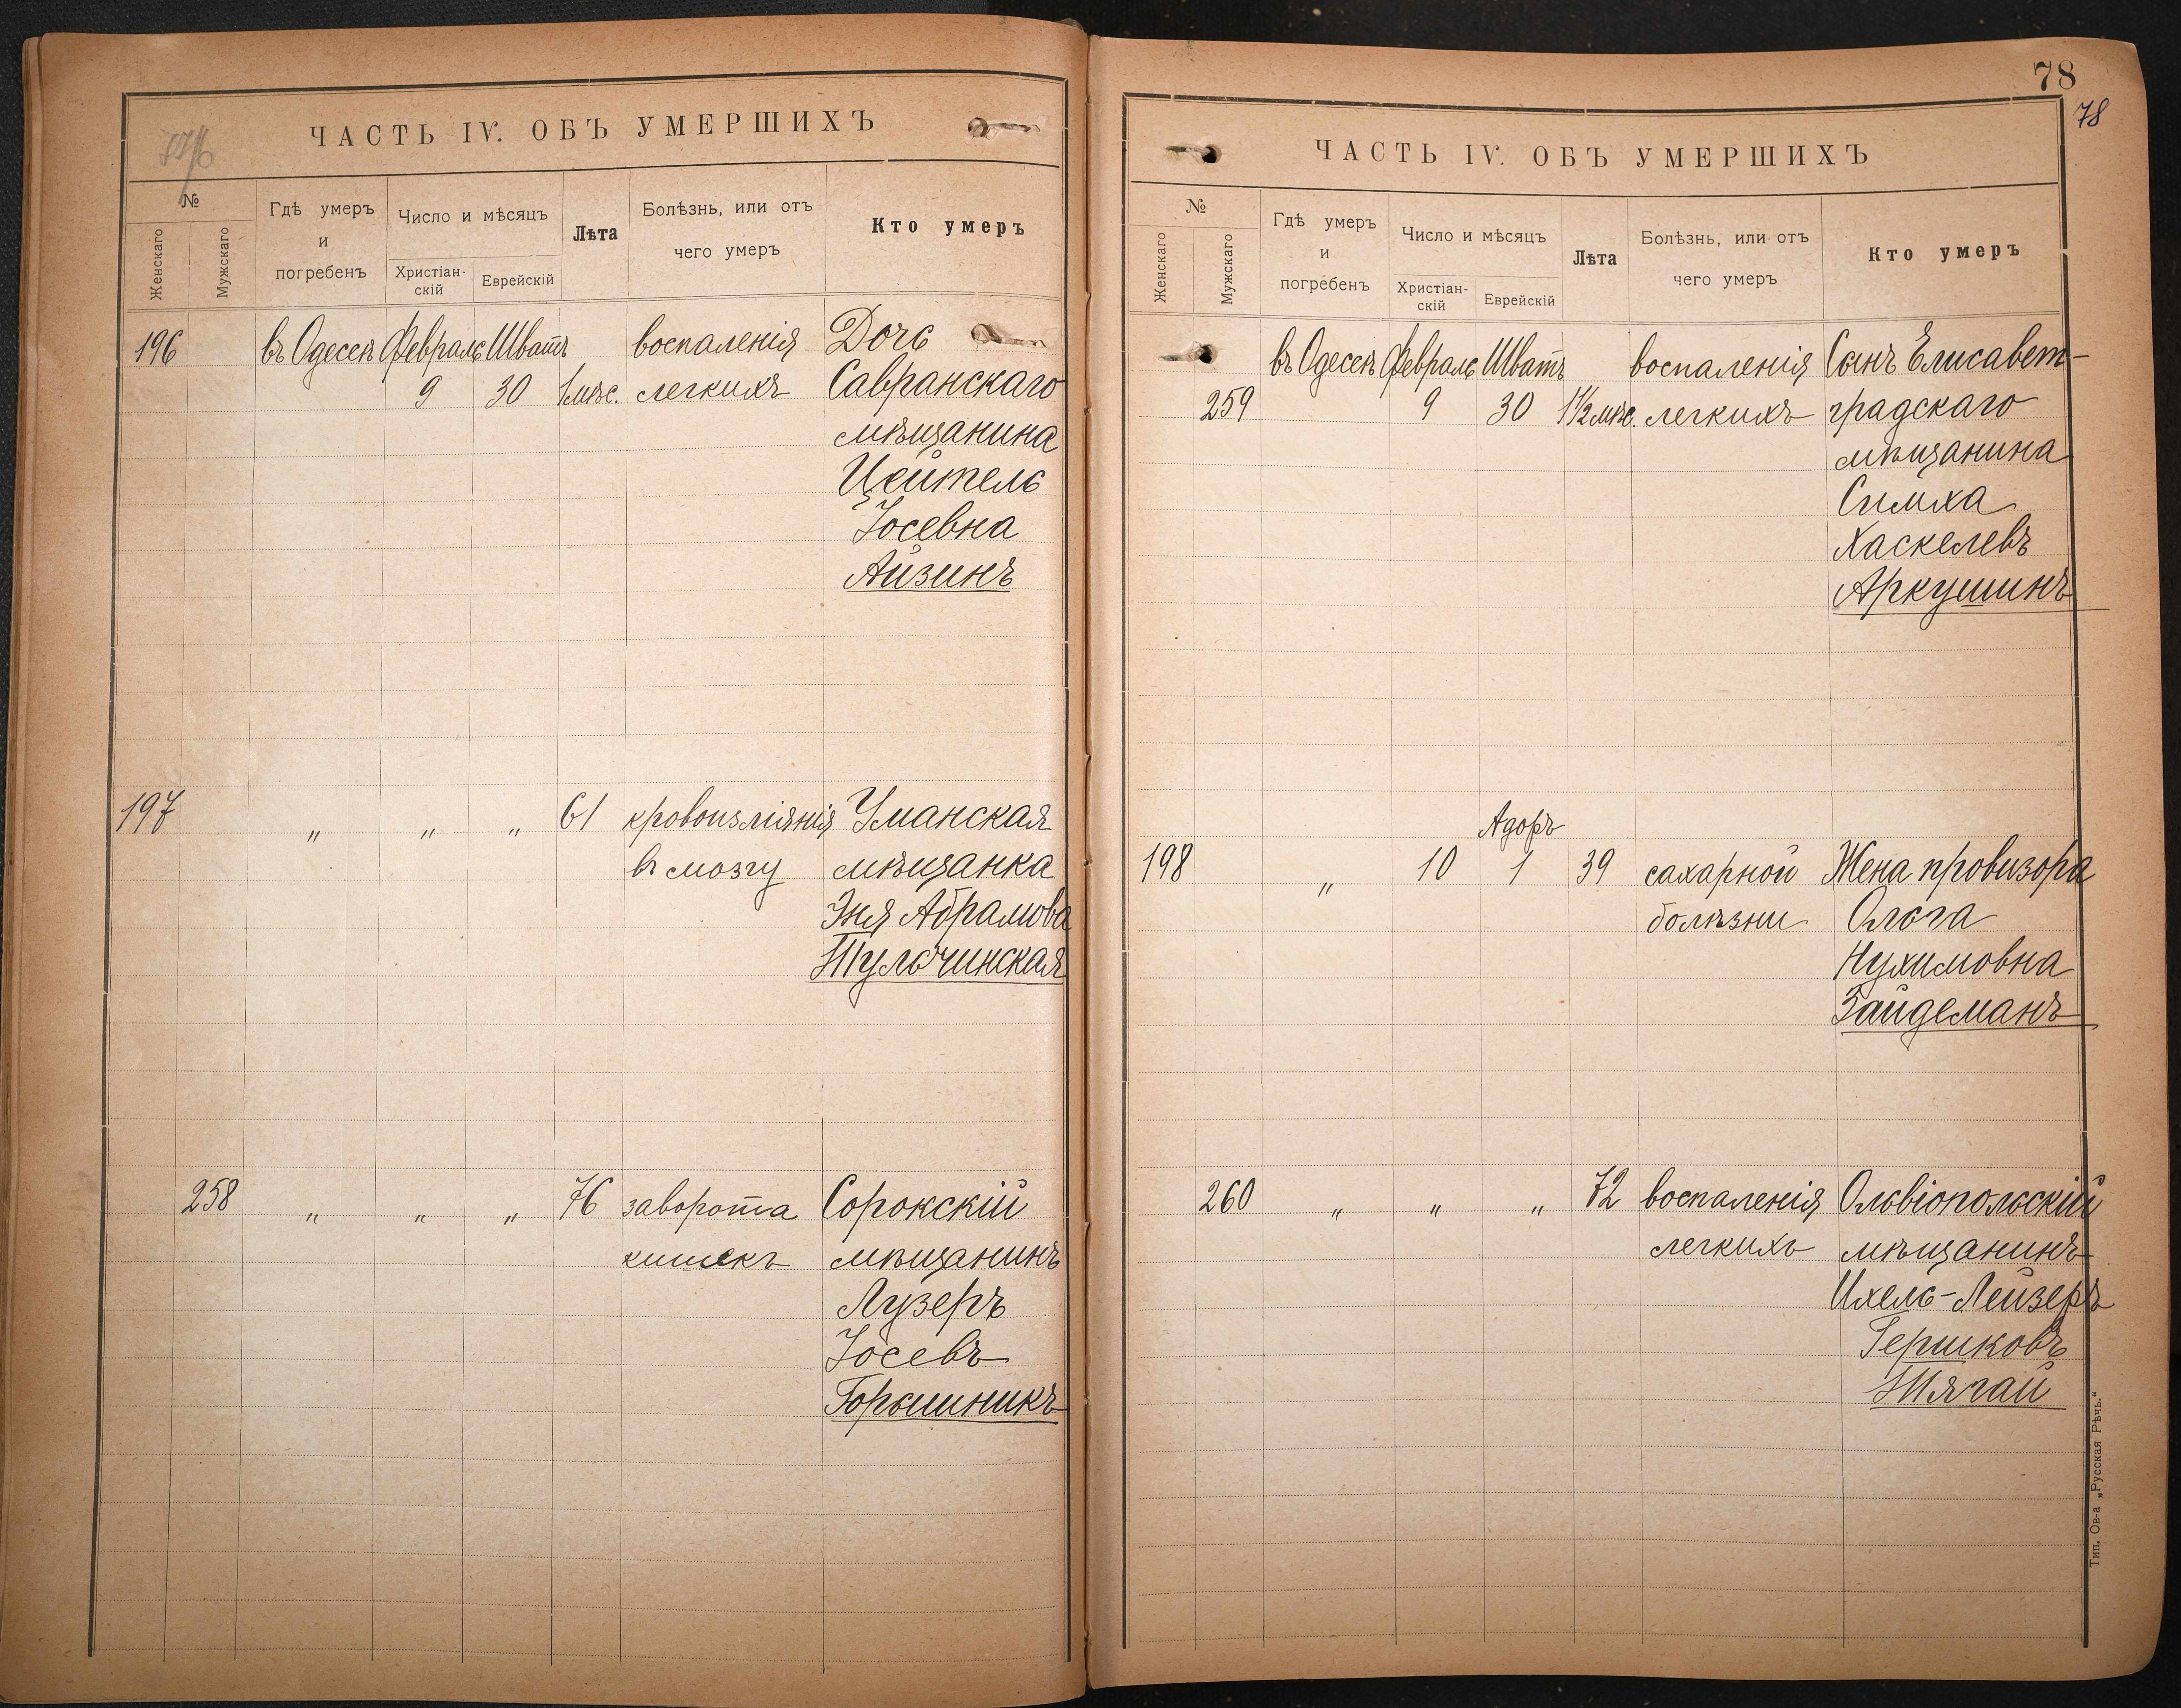 ЧАСТЬ IV. ОБЪ УМЕРШИХЪ
№
Женскаго
Мужскаго
Гдѣ умеръ
и
погребенъ
Число и мѣсяцъ
Христіан-
скій
Еврейскій
Лѣта
Болѣзнь, или отъ
чего умеръ
Кто умеръ
196 въ Одессѣ Февраль Шватъ воспаленія Дочь
9 30 1 мѣс. легкихъ Савранскаго
мѣщанина
Цейтель
Іосевна
Айзинъ
197 " " " 61 кровоизліянія Уманская
въ мозгу мѣщанка
Эня Абрамова
Тульчинская
258 " " " 76 заворота Сорокскій
кишекъ мѣщанинъ
Лузеръ
Іосевъ
Горшникъ
78
78
ЧАСТЬ IV. ОБЪ УМЕРШИХЪ
№
Женскаго
Мужскаго
Гдѣ умеръ
и
погребенъ
Число и мѣсяцъ
Христіан-
скій
Еврейскій
Лѣта
Болѣзнь, или отъ
чего умеръ
Кто умеръ
въ Одессѣ Февраль Шватъ воспаленія Сынъ Елисавет-
259 9 30 1½ мѣс. легкихъ градскаго
мѣщанина
Симха
Хаскелевъ
Аркушинъ
Адоръ
198 " 10 1 39 сахарной Жена провизора
болѣзни Ольга
Нухимовна
Зайдеманъ
260 " " " 72 воспаленія Ольвіопольскій
легкихъ мѣщанинъ
Ихель-Лейзеръ
Гершковъ
Тягай
Тип. Ов-а „Русская Рѣчь.“